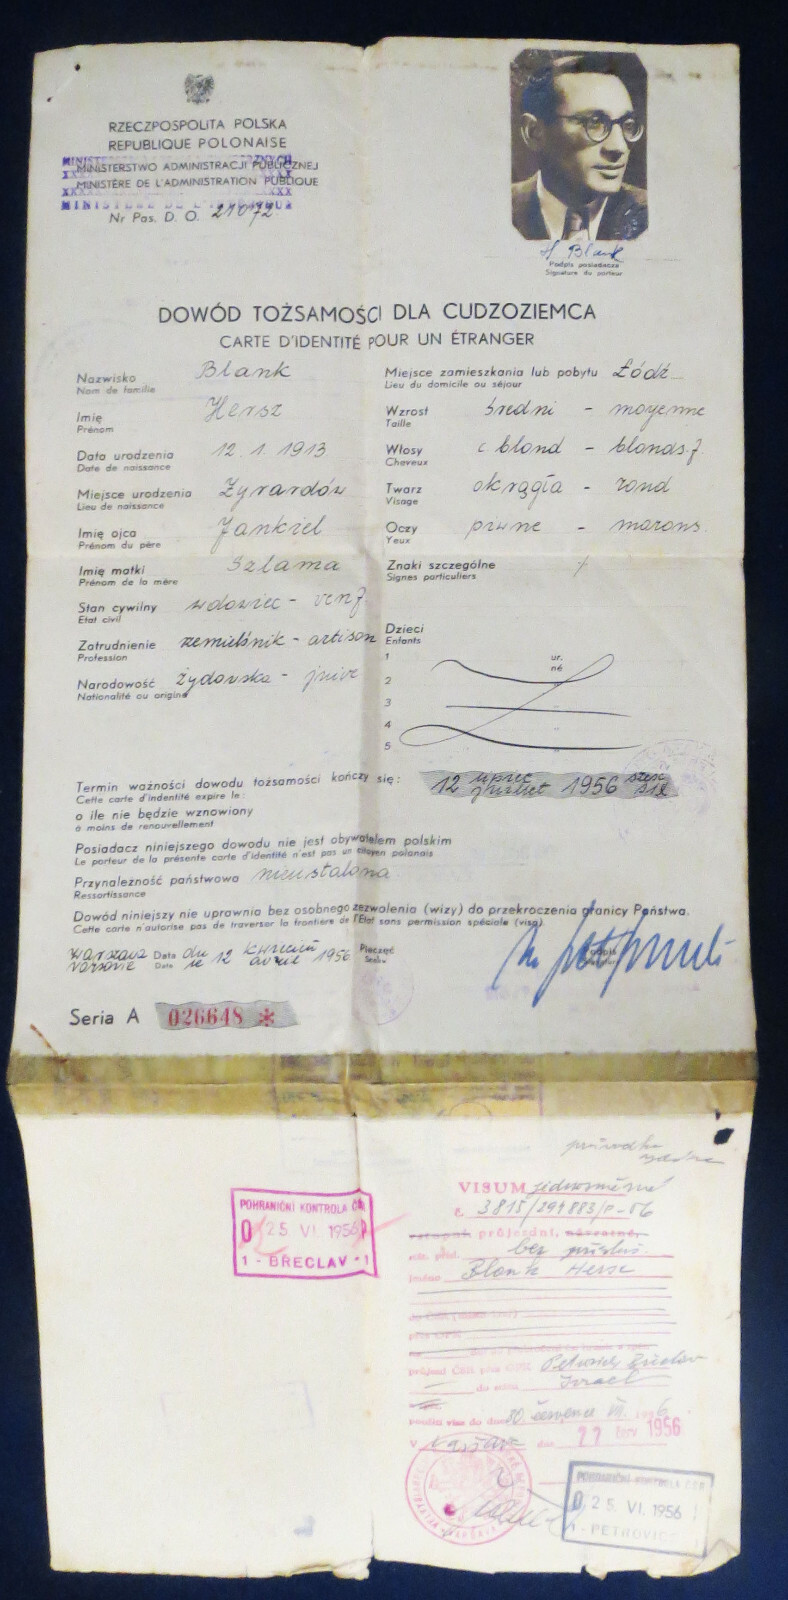 RZECZPOSPOLITA POLSKA
REPUBLIQUE POLONAISE
MINISTERSTWO ADMINISTRACJI PUBLICZNEJ
MINISTÈRE DE L'ADMINISTRATION PUBLIQUE
Nr Pas. D. O. 21072
H Blank
Podpis posiadacza
Signature du porteur
DOWÓD TOŻSAMOŚCI DLA CUDZOZIEMCA
CARTE D'IDENTITÉ POUR UN ÉTRANGER
Nazwisko Blank
Nom de famille
Imię Hersz
Prénom
Data urodzenia 12. 1. 1913
Date de naissance
Miejsce urodzenia Żyrardów
Lieu de naissance
Imię ojca Jankiel
Prénom du père
Imię matki Szlama
Prénom de la mère
Stan cywilny wdowiec - veuf
Etat civil
Zatrudnienie rzemieślnik - artison
Profession
Narodowość żydowska - juive
Nationalité ou origine
Miejsce zamieszkania lub pobytu Łódź
Lieu du domicile ou séjour
Wzrost średni - moyenne
Taille
Włosy c. blond - blonds f.
Cheveux
Twarz okrągła - rond
Visage
Oczy piwne - marons
Yeux
Znaki szczególne
Signes particuliers
Dzieci
Enfants
1 ur.
né
2
3
4
5
Termin ważności dowodu tożsamości kończy się: 12 lipiec 1956 sześć
Cette carte d'indentité expire le: juillet six
o ile nie będzie wznowiony
a moins de renouvellement
Posiadacz niniejszego dowodu nie jest obywatelem polskim
Le porteur de la présente carte d'identité n'est pas un citoyen polonais
Przynależność państwowa nieustalona
Ressortissance
Dowód niniejszy nie uprawnia bez osobnego zezwolenia (wizy) do przekroczenia granicy Państwa.
Cette carte n'autorise pas de traverser la frontière de l'Etat sans permission spéciale (visa)
Warszawa Data dn 12 kwiecień 1956 Pieczęć
Varsovie Date le avril Sceau
Seria A 026648 *
VISUM jednosměrné
č. 3815/291883/P-56
vstupní, průjezdní, návratné,
bez přísluš.
jméno Blank Hersz
průjezd ČSR přes Petrovice Břeclav
do státu Israel
použití visa do dne 30 července VII. 1956
V Varšavě dne 22 ČERV 1956
POHRANIČNÍ KONTROLA ČSR
O 25. VI. 1956
1 - BŘECLAV - 1
POHRANIČNÍ KONTROLA ČSR
O 25. VI. 1956
1 - PETROVICE